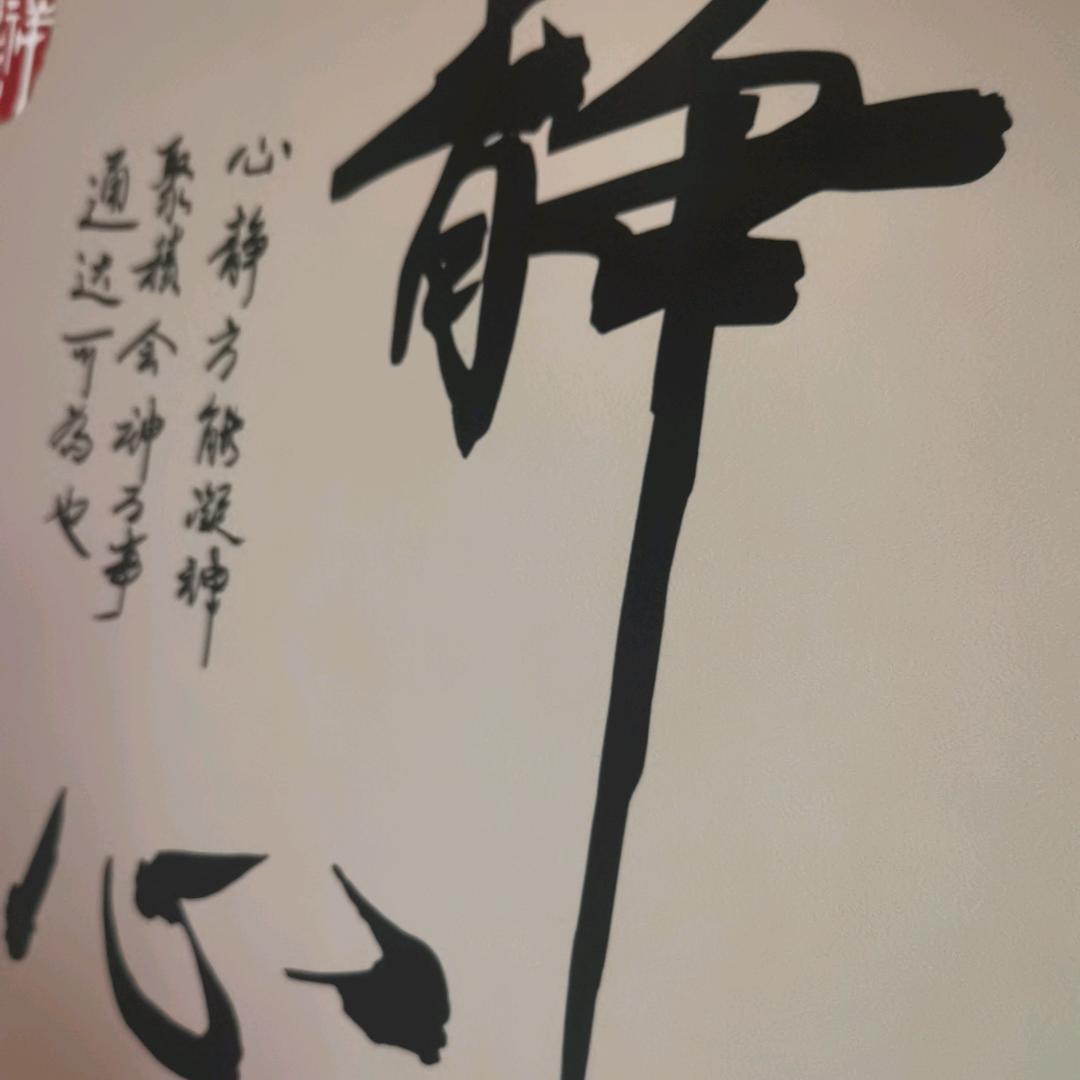 静心
心静方能凝神
聚精会神万事
通达可为也
祥